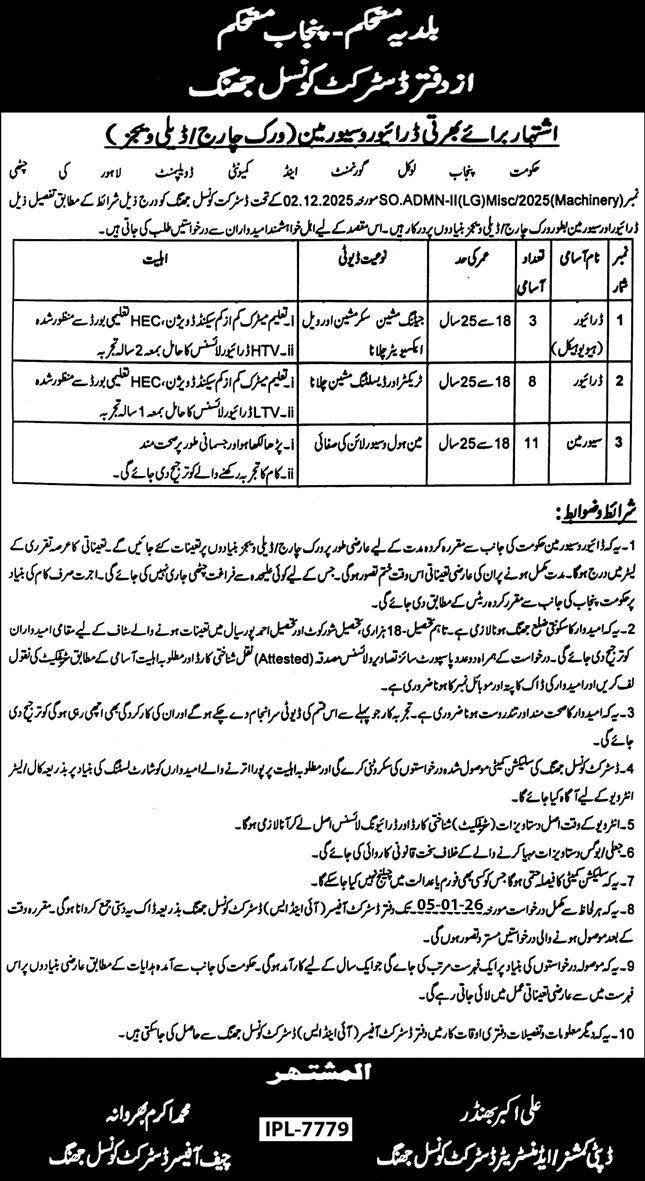 بلدیہ مستحکم - پنجاب مستحکم
از دفتر ڈسٹرکٹ کونسل جھنگ
اشتہار برائے بھرتی ڈرائیور و سیورمین (ورک چارج / ڈیلی ویجز)
حکومت پنجاب لوکل گورنمنٹ اینڈ کمیونٹی ڈویلپمنٹ لاہور کی چٹھی
نمبر SO.ADMN-II(LG)Misc/2025(Machinery) مورخہ 02.12.2025 کے تحت ڈسٹرکٹ کونسل جھنگ کو درج ذیل شرائط کے مطابق تفصیل ذیل
ڈرائیور اور سیورمین بطور ورک چارج / ڈیلی ویجز بنیادوں پر درکار ہیں۔ اس مقصد کے لیے اہل خواہشمند امیدواران سے درخواستیں طلب کی جاتی ہیں۔
نمبر شمار | نام آسامی | تعداد آسامی | عمر کی حد | نوعیت ڈیوٹی | اہلیت
1 | ڈرائیور (ہیوی وہیکل) | 3 | 18 سے 25 سال | جیٹنگ مشین سکر مشین اور ویل ایکسیویٹر چلانا | i۔ تعلیم میٹرک کم از کم سیکنڈ ڈویژن، HEC تعلیمی بورڈ سے منظور شدہ
ii۔ HTV ڈرائیور لائسنس کا حامل بمعہ 2 سالہ تجربہ
2 | ڈرائیور | 8 | 18 سے 25 سال | ٹریکٹر اور ڈسلٹنگ مشین چلانا | i۔ تعلیم میٹرک کم از کم سیکنڈ ڈویژن، HEC تعلیمی بورڈ سے منظور شدہ
ii۔ LTV ڈرائیور لائسنس کا حامل بمعہ 1 سالہ تجربہ
3 | سیورمین | 11 | 18 سے 25 سال | مین ہول و سیور لائن کی صفائی | i۔ پڑھا لکھا ہو اور جسمانی طور پر صحت مند
ii۔ کام کا تجربہ رکھنے والے کو ترجیح دی جائے گی۔
شرائط و ضوابط:
1۔ یہ کہ ڈرائیور و سیورمین حکومت کی جانب سے مقررہ کردہ مدت کے لیے عارضی طور پر ورک چارج / ڈیلی ویجز بنیادوں پر تعینات کئے جائیں گے۔ تعیناتی کا عرصہ تقرری کے
لیٹر میں درج ہوگا۔ مدت مکمل ہونے پر ان کی عارضی تعیناتی اس وقت ختم تصور ہوگی۔ جس کے لیے کوئی علیحدہ سے فراغت چٹھی جاری نہیں کی جائے گی۔ اجرت صرف کام کی بنیاد
پر حکومت پنجاب کی جانب سے مقرر کردہ ریٹس کے مطابق دی جائے گی۔
2۔ یہ کہ امیدوار کا سکونتی ضلع جھنگ ہونا لازمی ہے۔ تاہم تحصیل 18-ہزاری، تحصیل شورکوٹ اور تحصیل احمد پور سیال میں تعینات ہونے والے سٹاف کے لیے مقامی امیدواران
کو ترجیح دی جائے گی۔ درخواست کے ہمراہ دو عدد پاسپورٹ سائز تصاویر و لائسنس مصدقہ (Attested) نقل شناختی کارڈ اور مطلوبہ اہلیت آسامی کے مطابق سرٹیفکیٹ کی نقول
لف کریں اور امیدوار کی ڈاک کا پتہ اور موبائل نمبر کا ہونا ضروری ہے۔
3۔ یہ کہ امیدوار کا صحت مند اور تندرست ہونا ضروری ہے۔ تجربہ کار جو پہلے سے اس قسم کی ڈیوٹی سرانجام دے چکے ہو گا اور ان کی کارکردگی بھی اچھی رہی ہوگی کو ترجیح دی
جائے گی۔
4۔ ڈسٹرکٹ کونسل جھنگ کی سلیکشن کمیٹی موصول شدہ درخواستوں کی سکروٹنی کرے گی اور مطلوبہ اہلیت پر پورا اترنے والے امیدواروں کو شارٹ لسٹنگ کی بنیاد پر بذریعہ کال / لیٹر
انٹرویو کے لیے آگاہ کیا جائے گا۔
5۔ انٹرویو کے وقت اصل دستاویزات (سرٹیفکیٹ) شناختی کارڈ اور ڈرائیونگ لائسنس اصل لے کر آنا لازمی ہوگا۔
6۔ جعلی / بوگس دستاویزات مہیا کرنے والے کے خلاف سخت قانونی کاروائی کی جائے گی۔
7۔ یہ کہ سلیکشن کمیٹی کا فیصلہ حتمی ہوگا جس کو کسی بھی فورم یا عدالت میں چیلنج نہیں کیا جا سکے گا۔
8۔ یہ کہ ہر لحاظ سے مکمل درخواست مورخہ 05-01-26 تک دفتر ڈسٹرکٹ آفیسر (آئی اینڈ ایس) ڈسٹرکٹ کونسل جھنگ بذریعہ ڈاک یہ دستی جمع کروانا ہوگی۔ مقررہ وقت
کے بعد موصول ہونے والی درخواستیں مسترد تصور ہوں گی۔
9۔ یہ کہ موصولہ درخواستوں کی بنیاد پر ایک فہرست مرتب کی جائے گی جو ایک سال کے لیے کارآمد ہوگی۔ حکومت کی جانب سے آمدہ ہدایات کے مطابق عارضی بنیادوں پر اس
فہرست میں سے عارضی تعیناتی عمل میں لائی جاتی رہے گی۔
10۔ یہ کہ دیگر معلومات و تفصیلات دفتری اوقات کار میں دفتر ڈسٹرکٹ آفیسر (آئی اینڈ ایس) ڈسٹرکٹ کونسل جھنگ سے حاصل کی جا سکتی ہیں۔
المشتہر
علی اکبر بھنڈر
ڈپٹی کمشنر / ایڈمنسٹریٹر ڈسٹرکٹ کونسل جھنگ
محمد اکرم بھروانہ
چیف آفیسر ڈسٹرکٹ کونسل جھنگ
IPL-7779